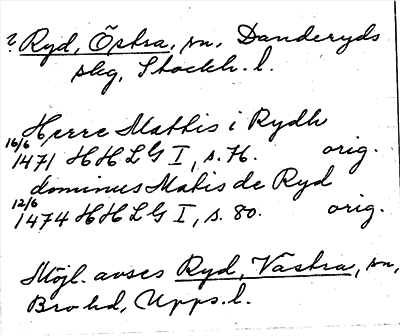 ? Ryd, Östra, sn, Danderyds
skg, Stockh. l.
Herre Mattis i Rydh
16/6 1471 HHLG I, s. 76. orig.
dominus Matis de Ryd
12/6 1474 HHLG I, s. 80. orig.
Möjl. avses Ryd, Västra, sn,
Bro hd, Upps. l.